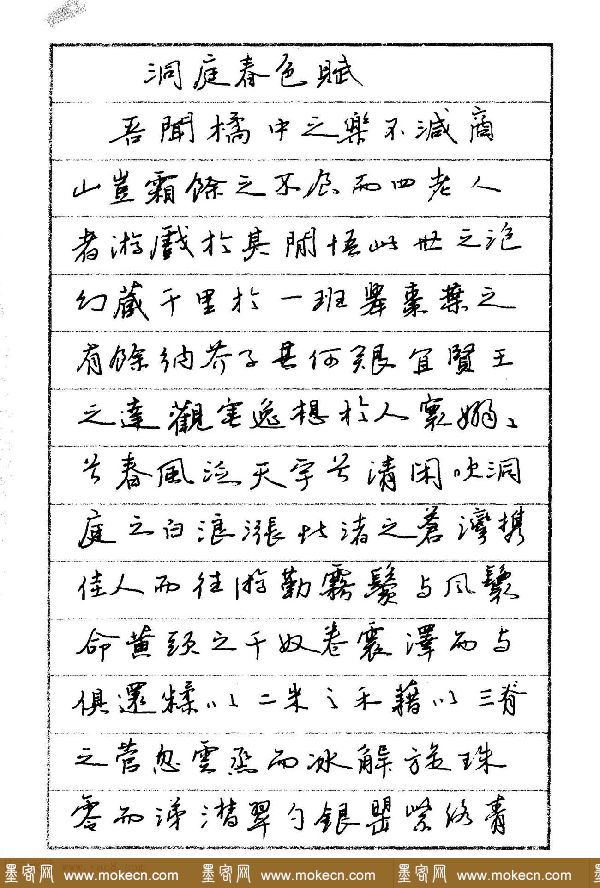 洞庭春色賦
吾聞橘中之樂不減商
山豈霜餘之不食而四老人
者游戲於其間悟此世之泡
幻藏千里於一班舉棗葉之
有餘納芥子其何艱宜賢王
之達觀寄逸想於人寰嫋々
兮春風泛天宇兮清閑吹洞
庭之白浪漲北渚之蒼灣攜
佳人而往游勤霧鬢与風鬟
命黄頭之千奴卷震澤而与
俱還糅以二米之禾藉以三脊
之菅忽雲烝而冰解旋珠
零而涕潸翠勺銀罌紫络青
墨客网 www.mokecn.com 墨客网 www.mokecn.com 墨客网 www.mokecn.com